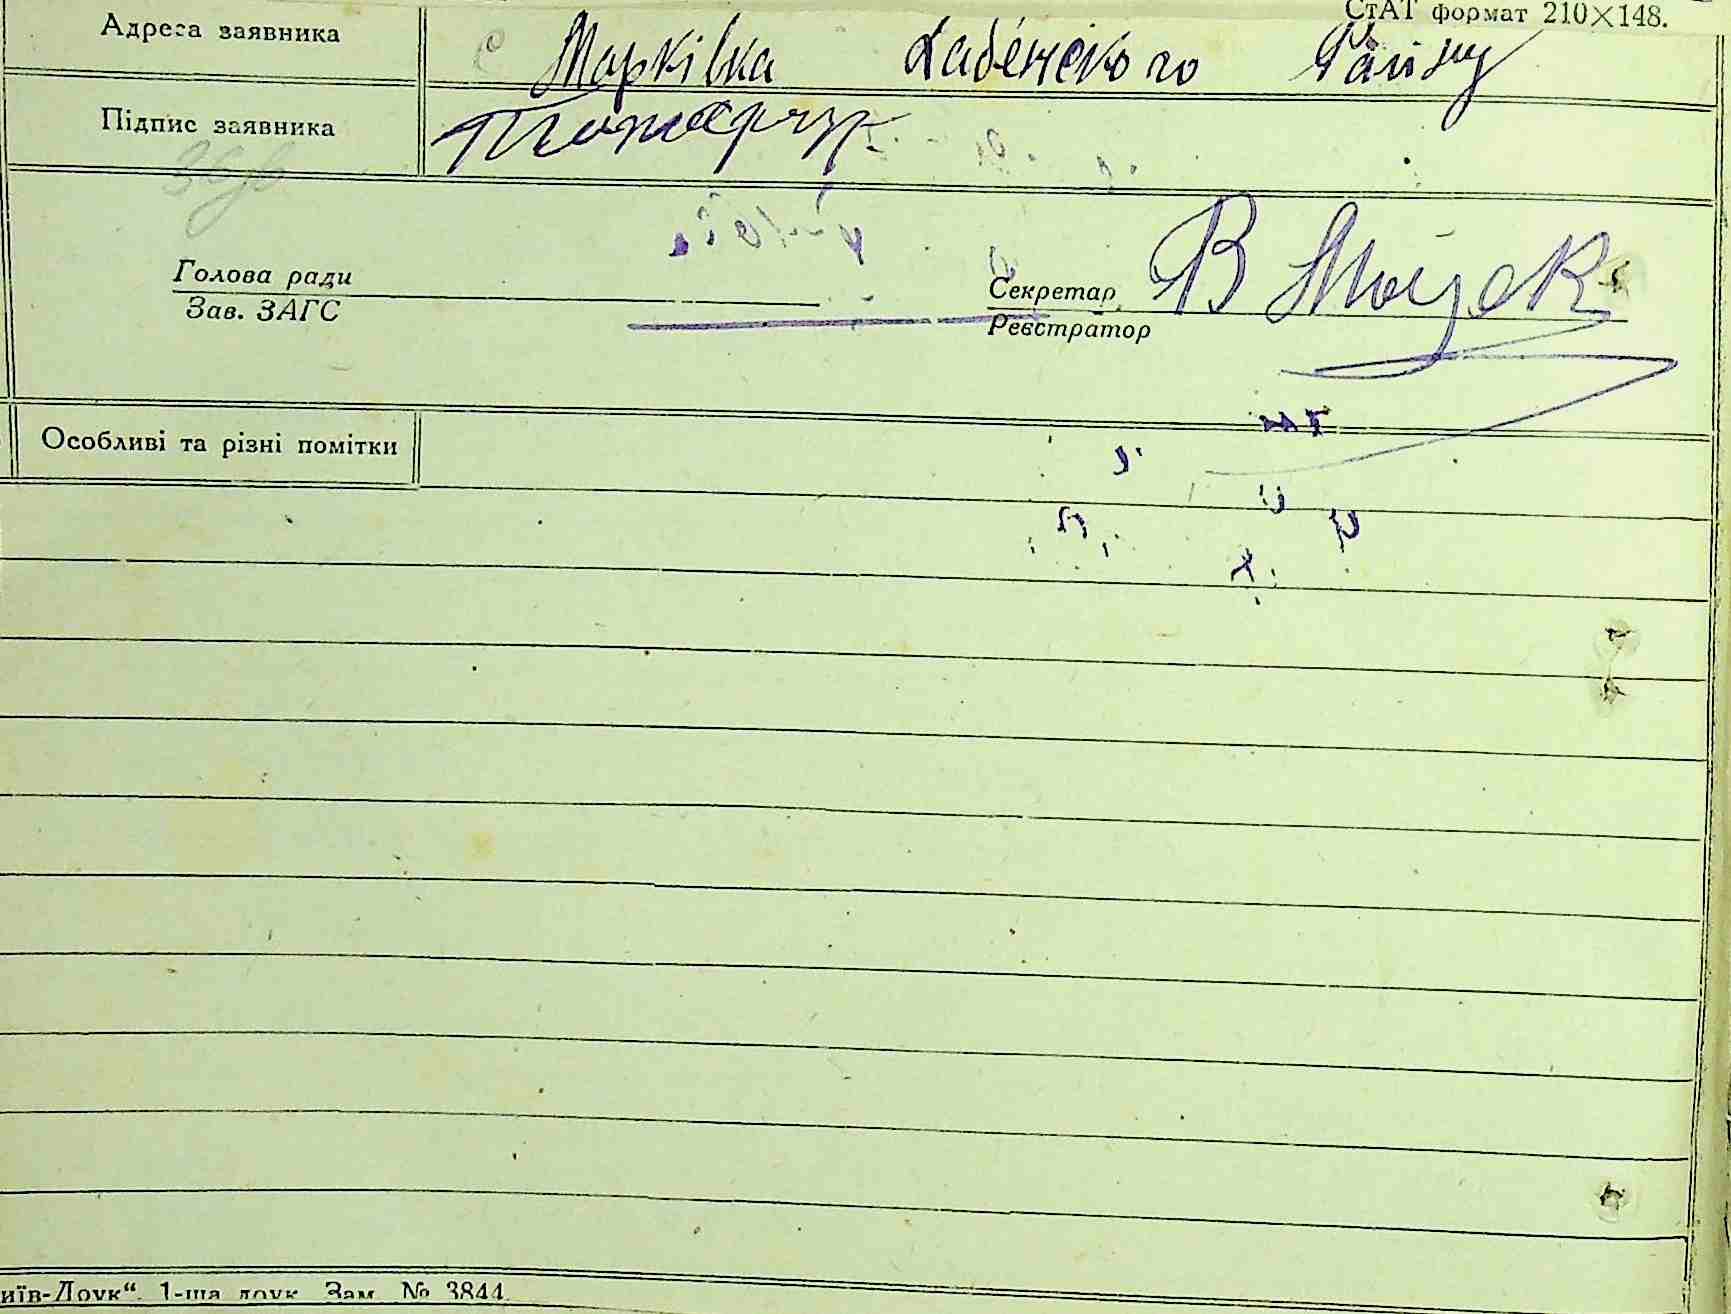 СтАТ формат 210×148.
Адреса заявника с Марківка Району
Підпис заявника
Голова ради
Зав. ЗАГС
Секретар В Моцок
Реєстратор
Особливі та різні помітки
иїв-Друк“. 1-ша друк. Зам. № 3844.